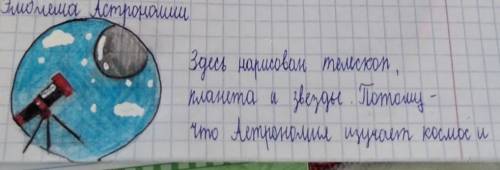 Эмблема Астрономии
Здесь нарисован телескоп,
планета и звезды. Потому-
что Астрономия изучает космос и